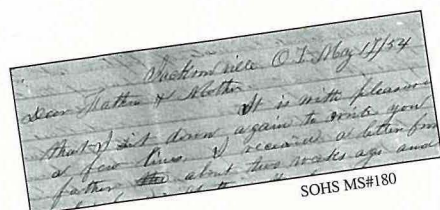 Jacksonville O T May 17/54
Dear Father & Mother
It is with pleasure
that I sit down again to write you
a few lines. I received a letter from
father about two weeks ago and
SOHS MS#180